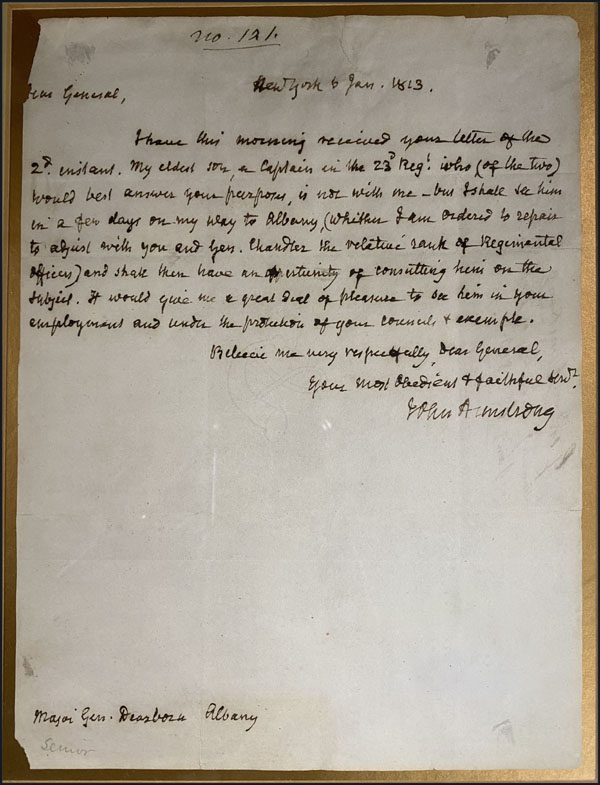 no. 121.
New York 6 Jan. 1813.
Dear General,
I have this morning received your letter of the
2d instant. My eldest son, a Captain in the 23d Regt. who (of the two)
would best answer your purposes, is not with me – but I shall see him
in a few days on my way to Albany, (whither I am ordered to repair
to adjust with you and Gen. Chandler the relative rank of Regimental
officers) and shall then have an opportunity of consulting him on the
subject. It would give me a great deal of pleasure to see him in your
employment and under the protection of your councils & example.
Believe me very respectfully, Dear General,
Your most obedient & faithful servt.
John Armstrong
Major Gen. Dearborn Albany
Senior